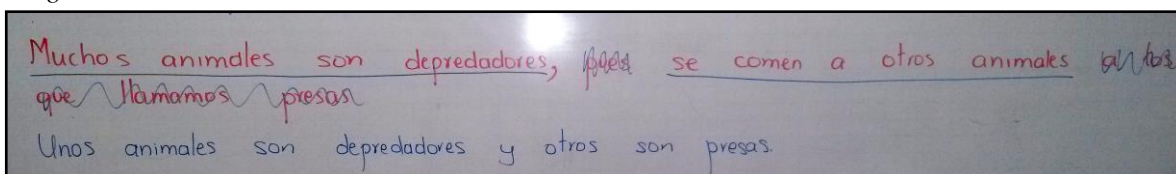 Muchos animales son depredadores, pues se comen a otros animales a los
que llamamos presas
Unos animales son depredadores y otros son presas.